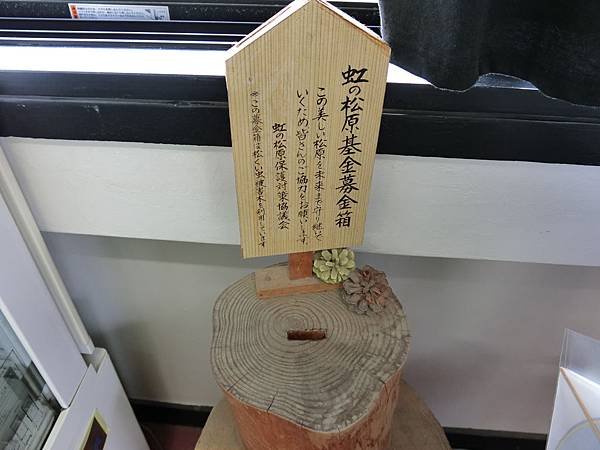 虹の松原基金募金箱
この美しい松原を未来まで守り継いで
いくため皆さんのご協力をお願いします。
虹の松原保護対策協議会
※この募金箱は松くい虫被害木を利用しています